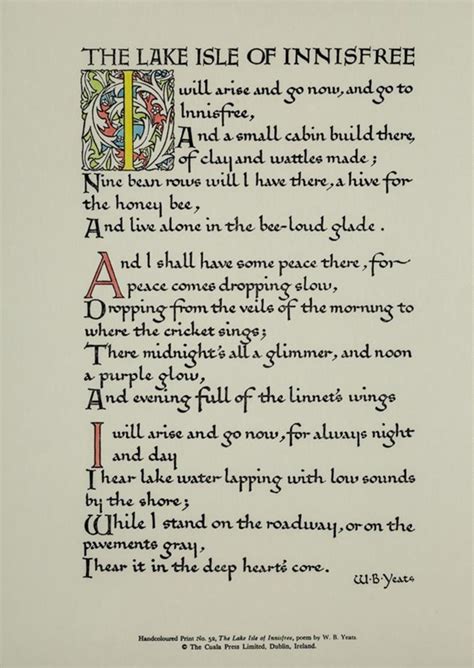 THE LAKE ISLE OF INNISFREE
I will arise and go now, and go to
Innisfree,
And a small cabin build there,
of clay and wattles made;
Nine bean rows will I have there, a hive for
the honey bee,
And live alone in the bee-loud glade.
And I shall have some peace there, for
peace comes dropping slow,
Dropping from the veils of the morning to
where the cricket sings;
There midnight's all a glimmer, and noon
a purple glow,
And evening full of the linnet's wings
I will arise and go now, for always night
and day
I hear lake water lapping with low sounds
by the shore;
While I stand on the roadway, or on the
pavements gray,
I hear it in the deep heart's core.
W·B·Yeats
Handcoloured Print No. 52, The Lake Isle of Innisfree, poem by W. B. Yeats
© The Cuala Press Limited, Dublin, Ireland.